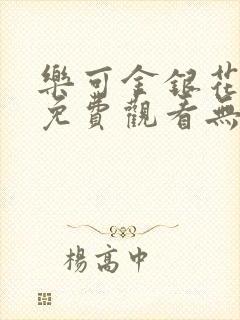 樂可金銀花
免費觀看無
楊高中